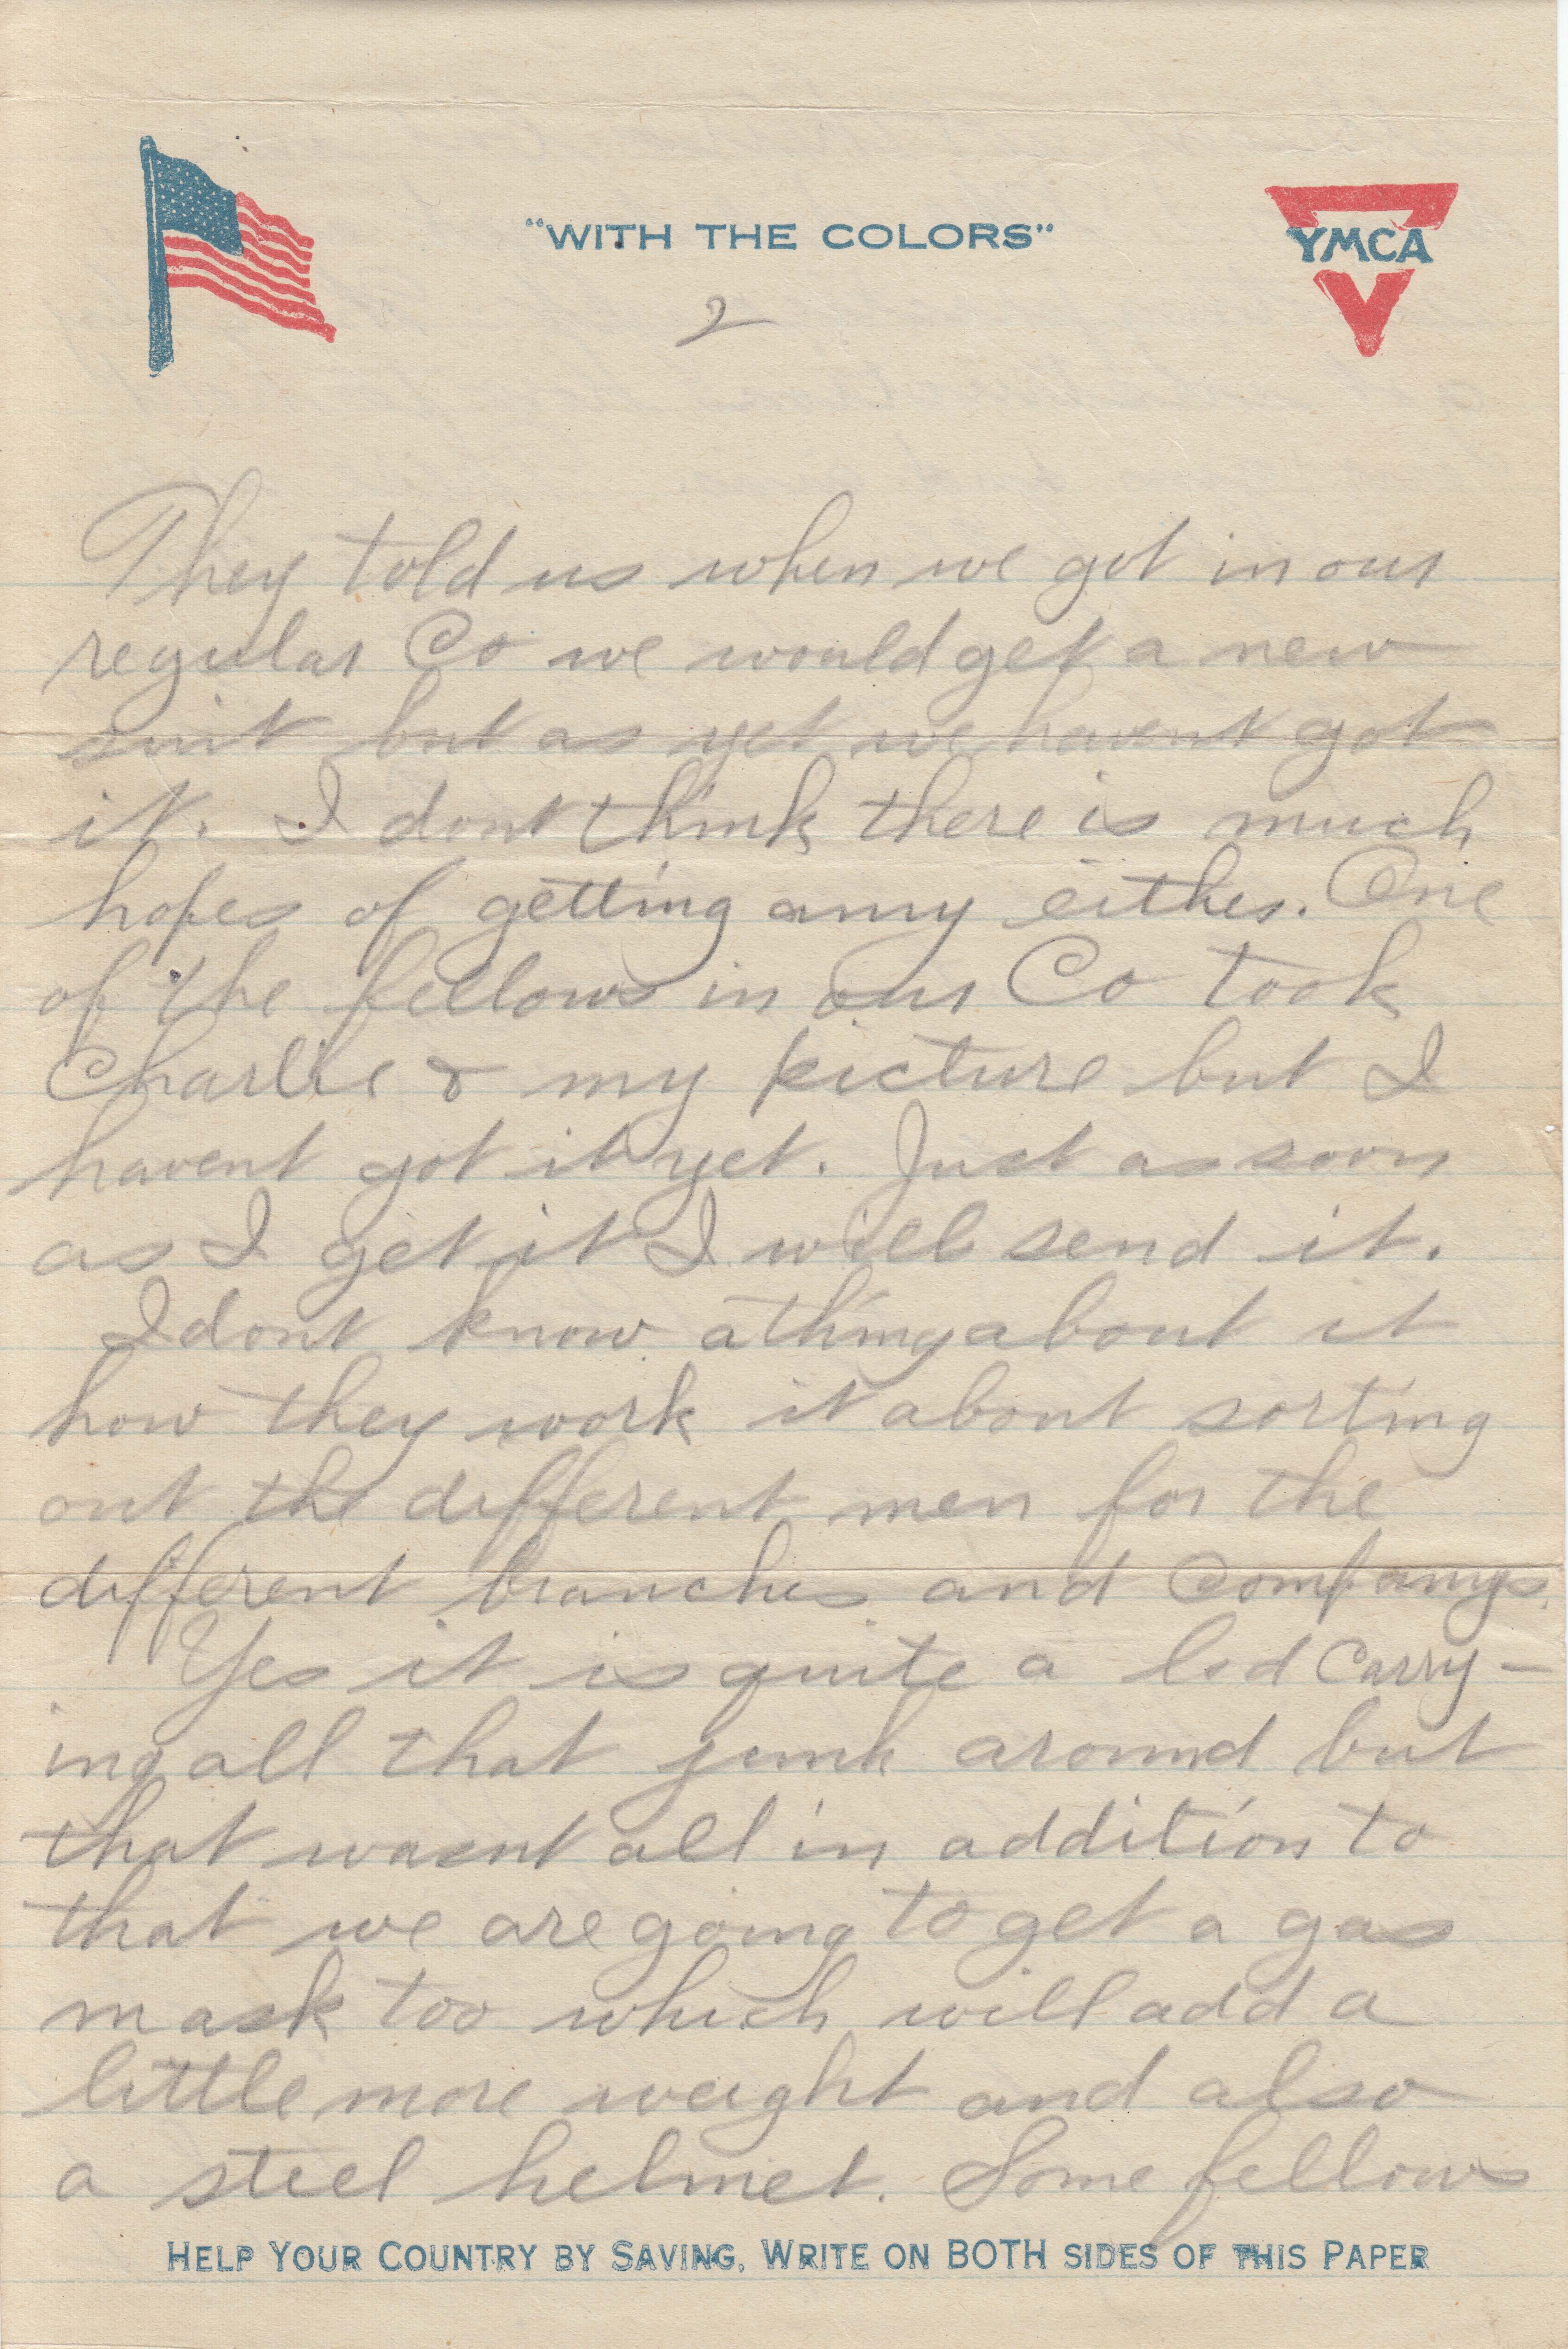 "WITH THE COLORS"
YMCA
2
They told us when we got in our
regular Co we would get a new
suit but as yet we havent got
it. I dont think there is much
hopes of getting anny either. One
of the fellows in our Co took
Charlie & my picture but I
havent got it yet. Just as soon
as I get it I will send it.
I dont know a thing about it
how they work it about sorting
out the different men for the
different branches and Companys.
Yes it is quite a lod carry-
ing all that junk around but
that wasnt all in addition to
that we are going to get a gas
mask too which will add a
little more weight and also
a steel helmet. Some fellows
HELP YOUR COUNTRY BY SAVING. WRITE ON BOTH SIDES OF THIS PAPER